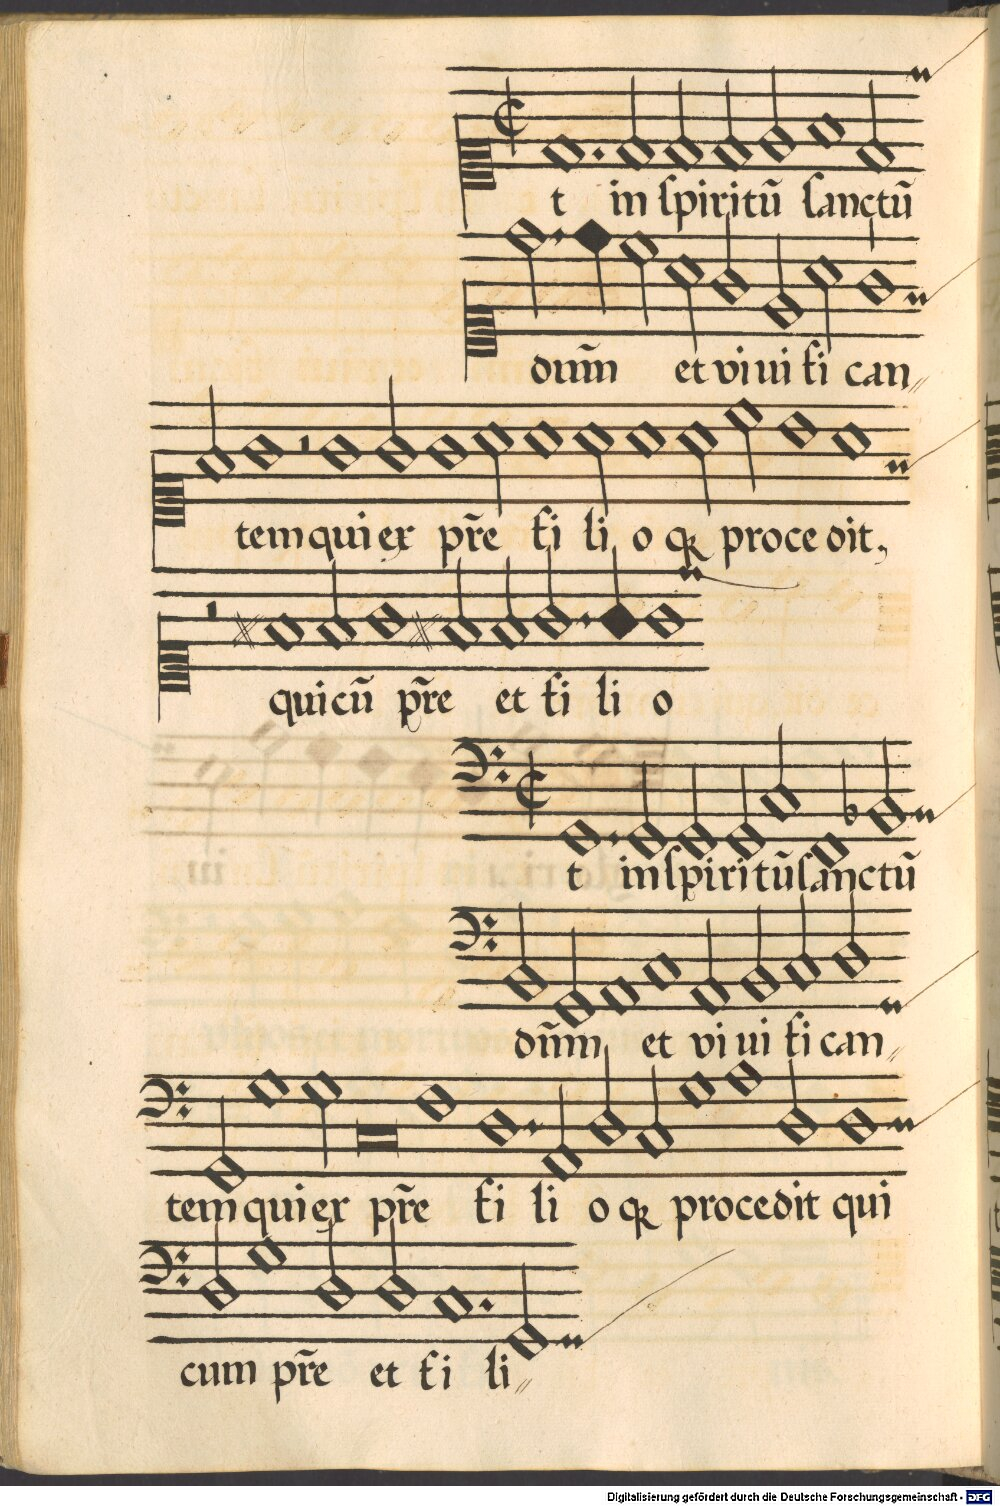 t in spiritū sanctū
dūm et vivi fi can
tem qui ex pr̄e fi li o qꝫ procedit,
qui cū pr̄e et fi li o
t in spiritū sanctū
dūm et vi vi fi can
tem qui ex pr̄e fi li o qꝫ procedit qui
cum pr̄e et fi li
Digitalisierung gefördert durch die Deutsche Forschungsgemeinschaft - DFG